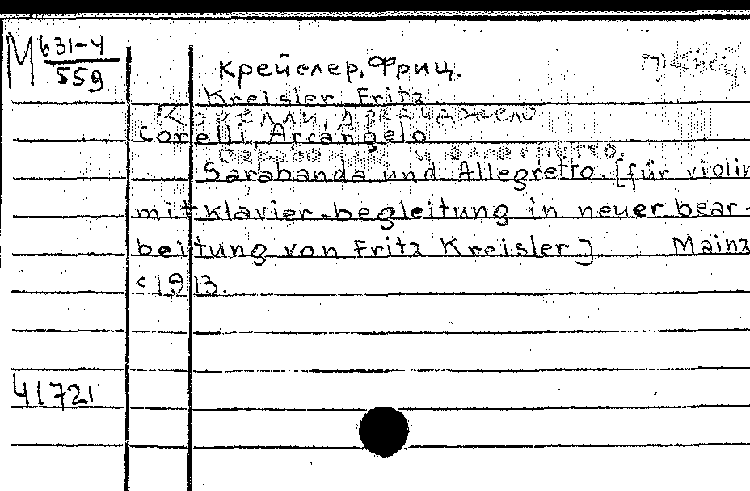 М 631-4
559
Крейслер, Фриц.
Kreisler Fritz
Корелли, Арканджело
Corelli, Arcangelo
Sarabanda und Allegretto. [für violin
mit Klavier-begleitung in neuer bear-
beitung von Fritz Kreisler] Mainz
c 1913.
41721